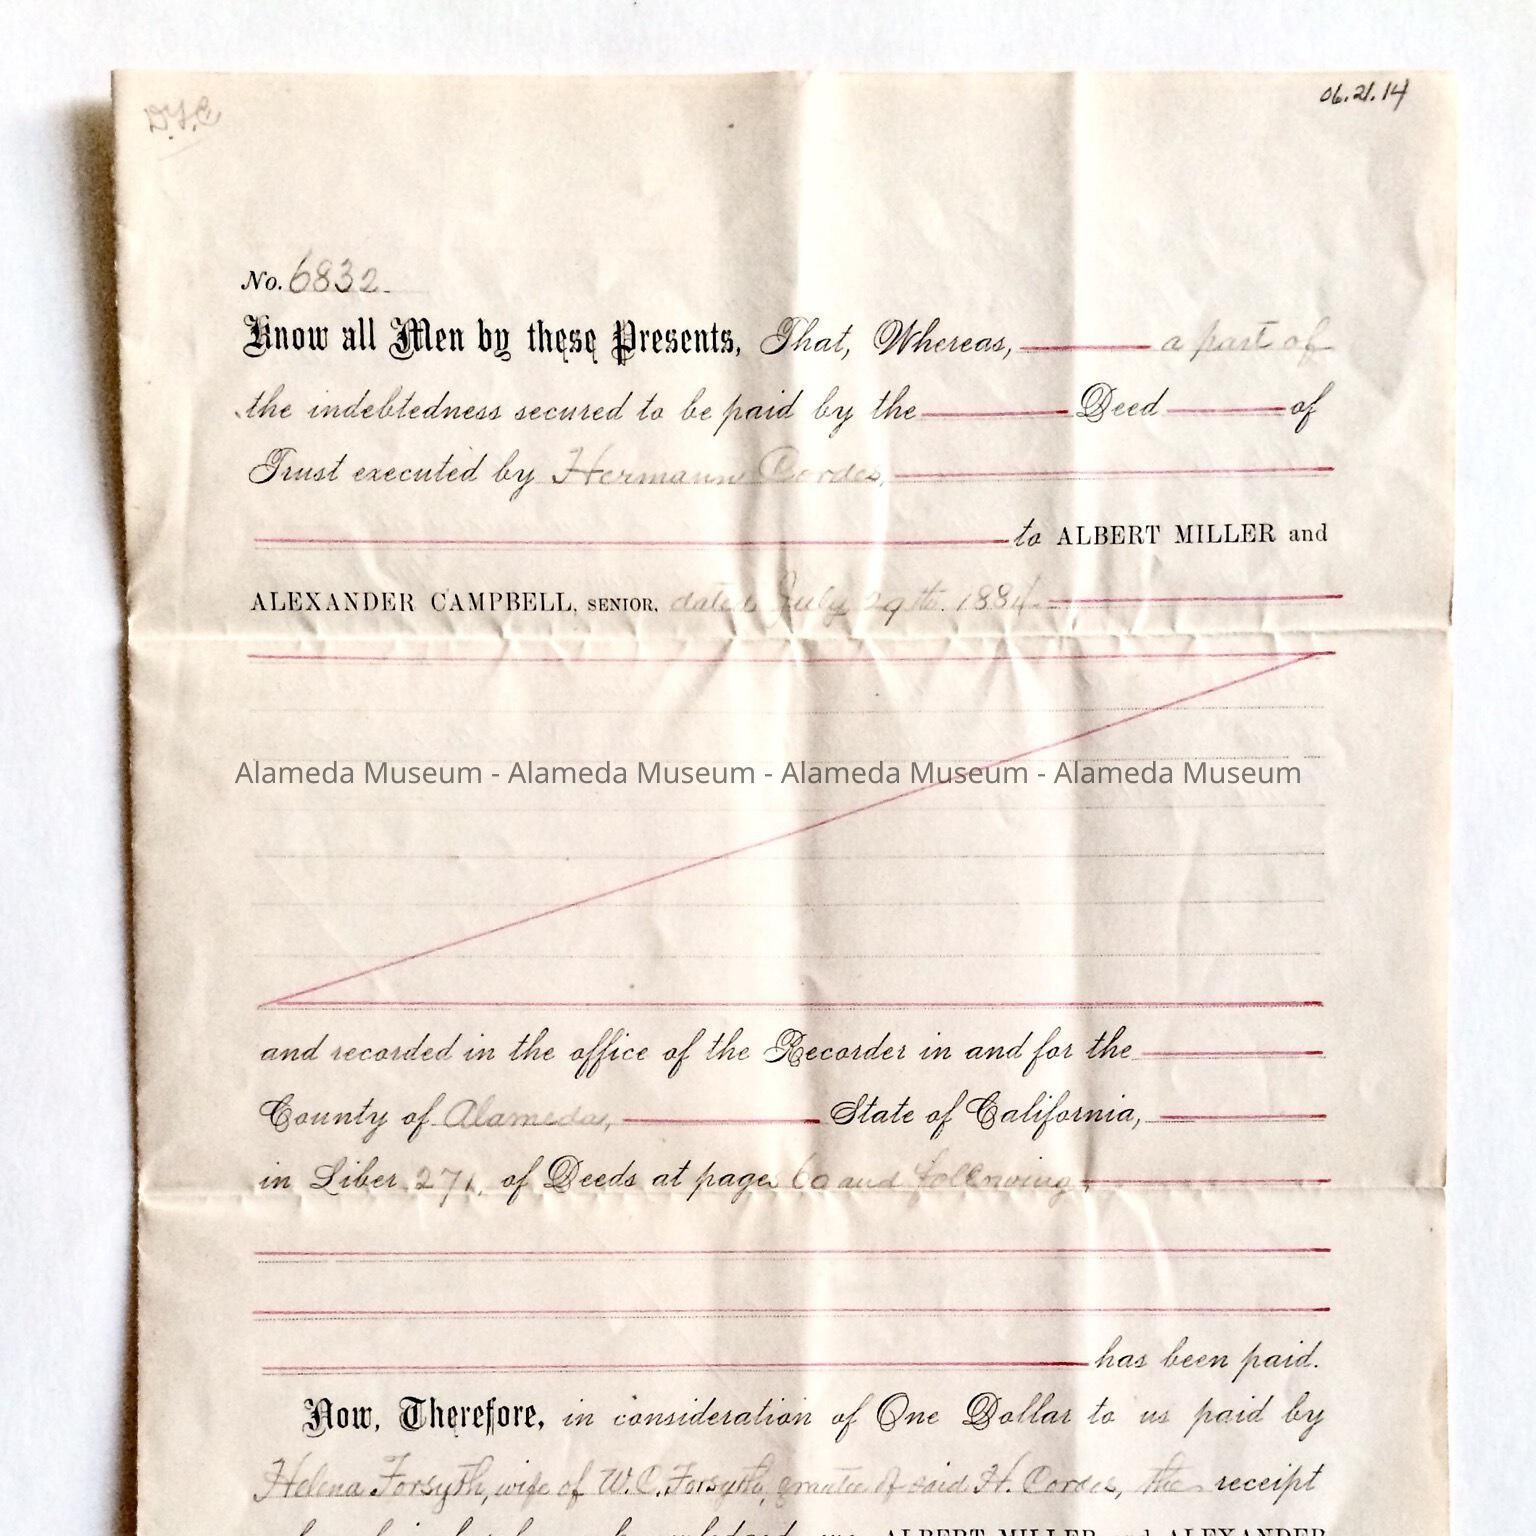 06.21.14
No. 6832.
Know all Men by these Presents, That, Whereas, a part of
the indebtedness secured to be paid by the Deed of
Trust executed by Hermann Cordes,
to ALBERT MILLER and
ALEXANDER CAMPBELL, SENIOR, dated July 29th. 1884.
Alameda Museum - Alameda Museum - Alameda Museum - Alameda Museum
and recorded in the office of the Recorder in and for the
County of Alameda, State of California,
in Liber 271, of Deeds at page 60 and following,
has been paid.
Now, Therefore, in consideration of One Dollar to us paid by
Helena Forsyth, wife of W.C. Forsyth, grantee of said H. Cordes, the receipt
ALBERT MILLER and ALEXANDER